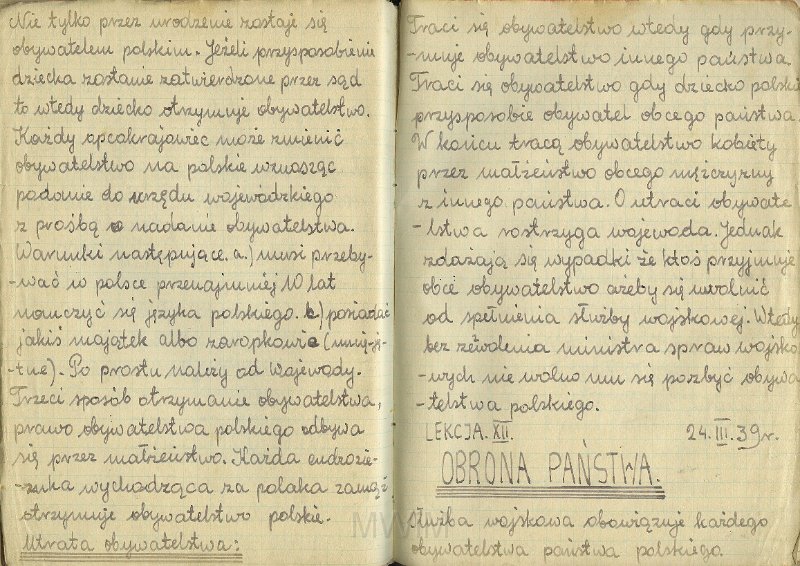 Nie tylko przez urodzenie zostaje się
obywatelem polskim. Jeżeli przysposobienie
dziecka zostanie zatwierdzone przez sąd
to wtedy dziecko otrzymuje obywatelstwo.
Każdy opcokrajowiec może zmienić
obywatelstwo na polskie wznosząc
podanie do urzędu wojewódzkiego
z prośbą o nadanie obywatelstwa.
Warunki następujące. a.) musi przeby-
-wać w polsce przenajmniej 10 lat
nauczyć się języka polskiego. b) posiadać
jakiś majątek albo zarobkowie
-tne). Po prostu należy od Wojewody.
Trzeci sposób otrzymanie obywatelstwa,
prawo obywatelstwa polskiego odbywa
się przez małżeństwo. Każda cudzozie-
-mka wychodząca za polaka zamąż
otrzymuje obywatelstwo polskie.
Utrata obywatelstwa:
Traci się obywatelstwo wtedy gdy przy-
-muje obywatelstwo innego państwa.
Traci się obywatelstwo gdy dziecko polskie
przysposobie obywatel obcego państwa.
W końcu tracą obywatelstwo kobiety
przez małżeństwo obcego mężczyzny
z innego państwa. O utraci obywate
-lstwa rostrzyga wojewoda. Jednak
zdażają się wypadki że ktoś przyjmuje
obce obywatelstwo ażeby się uwolnić
od spełnienia służby wojskowej. Wtedy
bez zezwolenia ministra spraw wojsko
-wych nie wolno mu się pozbyć obywa
-telstwa polskiego.
LEKCJA. XII. 24. III. 39 r.
OBRONA PAŃSTWA.
Służba wojskowa obowiązuje każdego
obywatelstwa państwa polskiego.
MWM